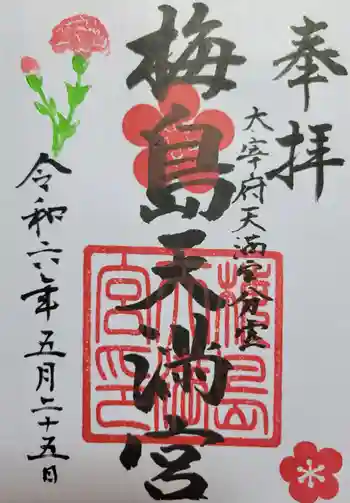 奉拝
太宰府天満宮分霊
梅島天満宮
令和六年五月二十五日
梅島
天満
宮印